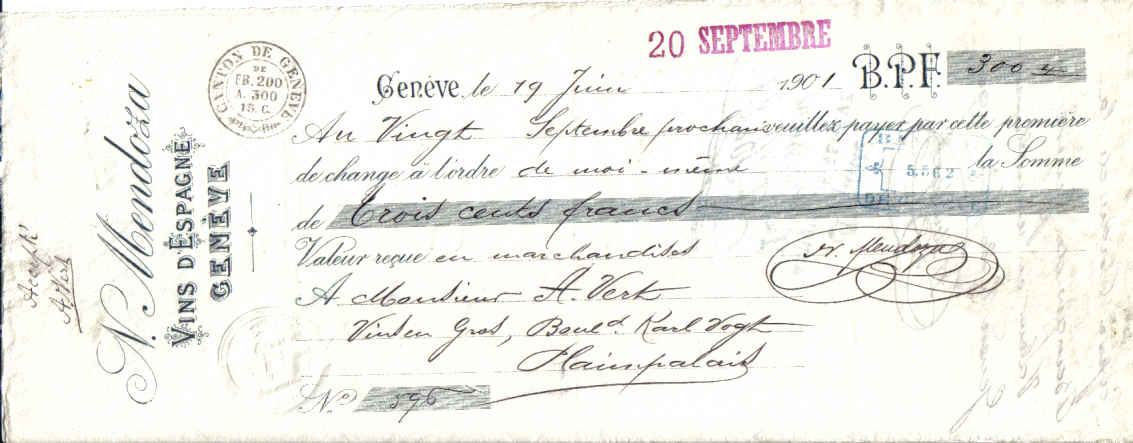 20 SEPTEMBRE
CANTON DE GENÈVE
DE
FR. 200
A. 300
15. C.
Genève, le 19 Juin 1901 B.P.F. 300
Au Vingt Septembre prochain veuillez payer par cette première
de change à l'ordre de moi-même la Somme
de Trois cents francs
Valeur reçue en marchandises
N. Mendoza
A Monsieur A. Vert
Vins en Gros, Boul.d Karl Vogt
Plainpalais
No. 596
N. Mendoza
VINS D'ESPAGNE
GENÈVE
Accepté
A. Vert
5562